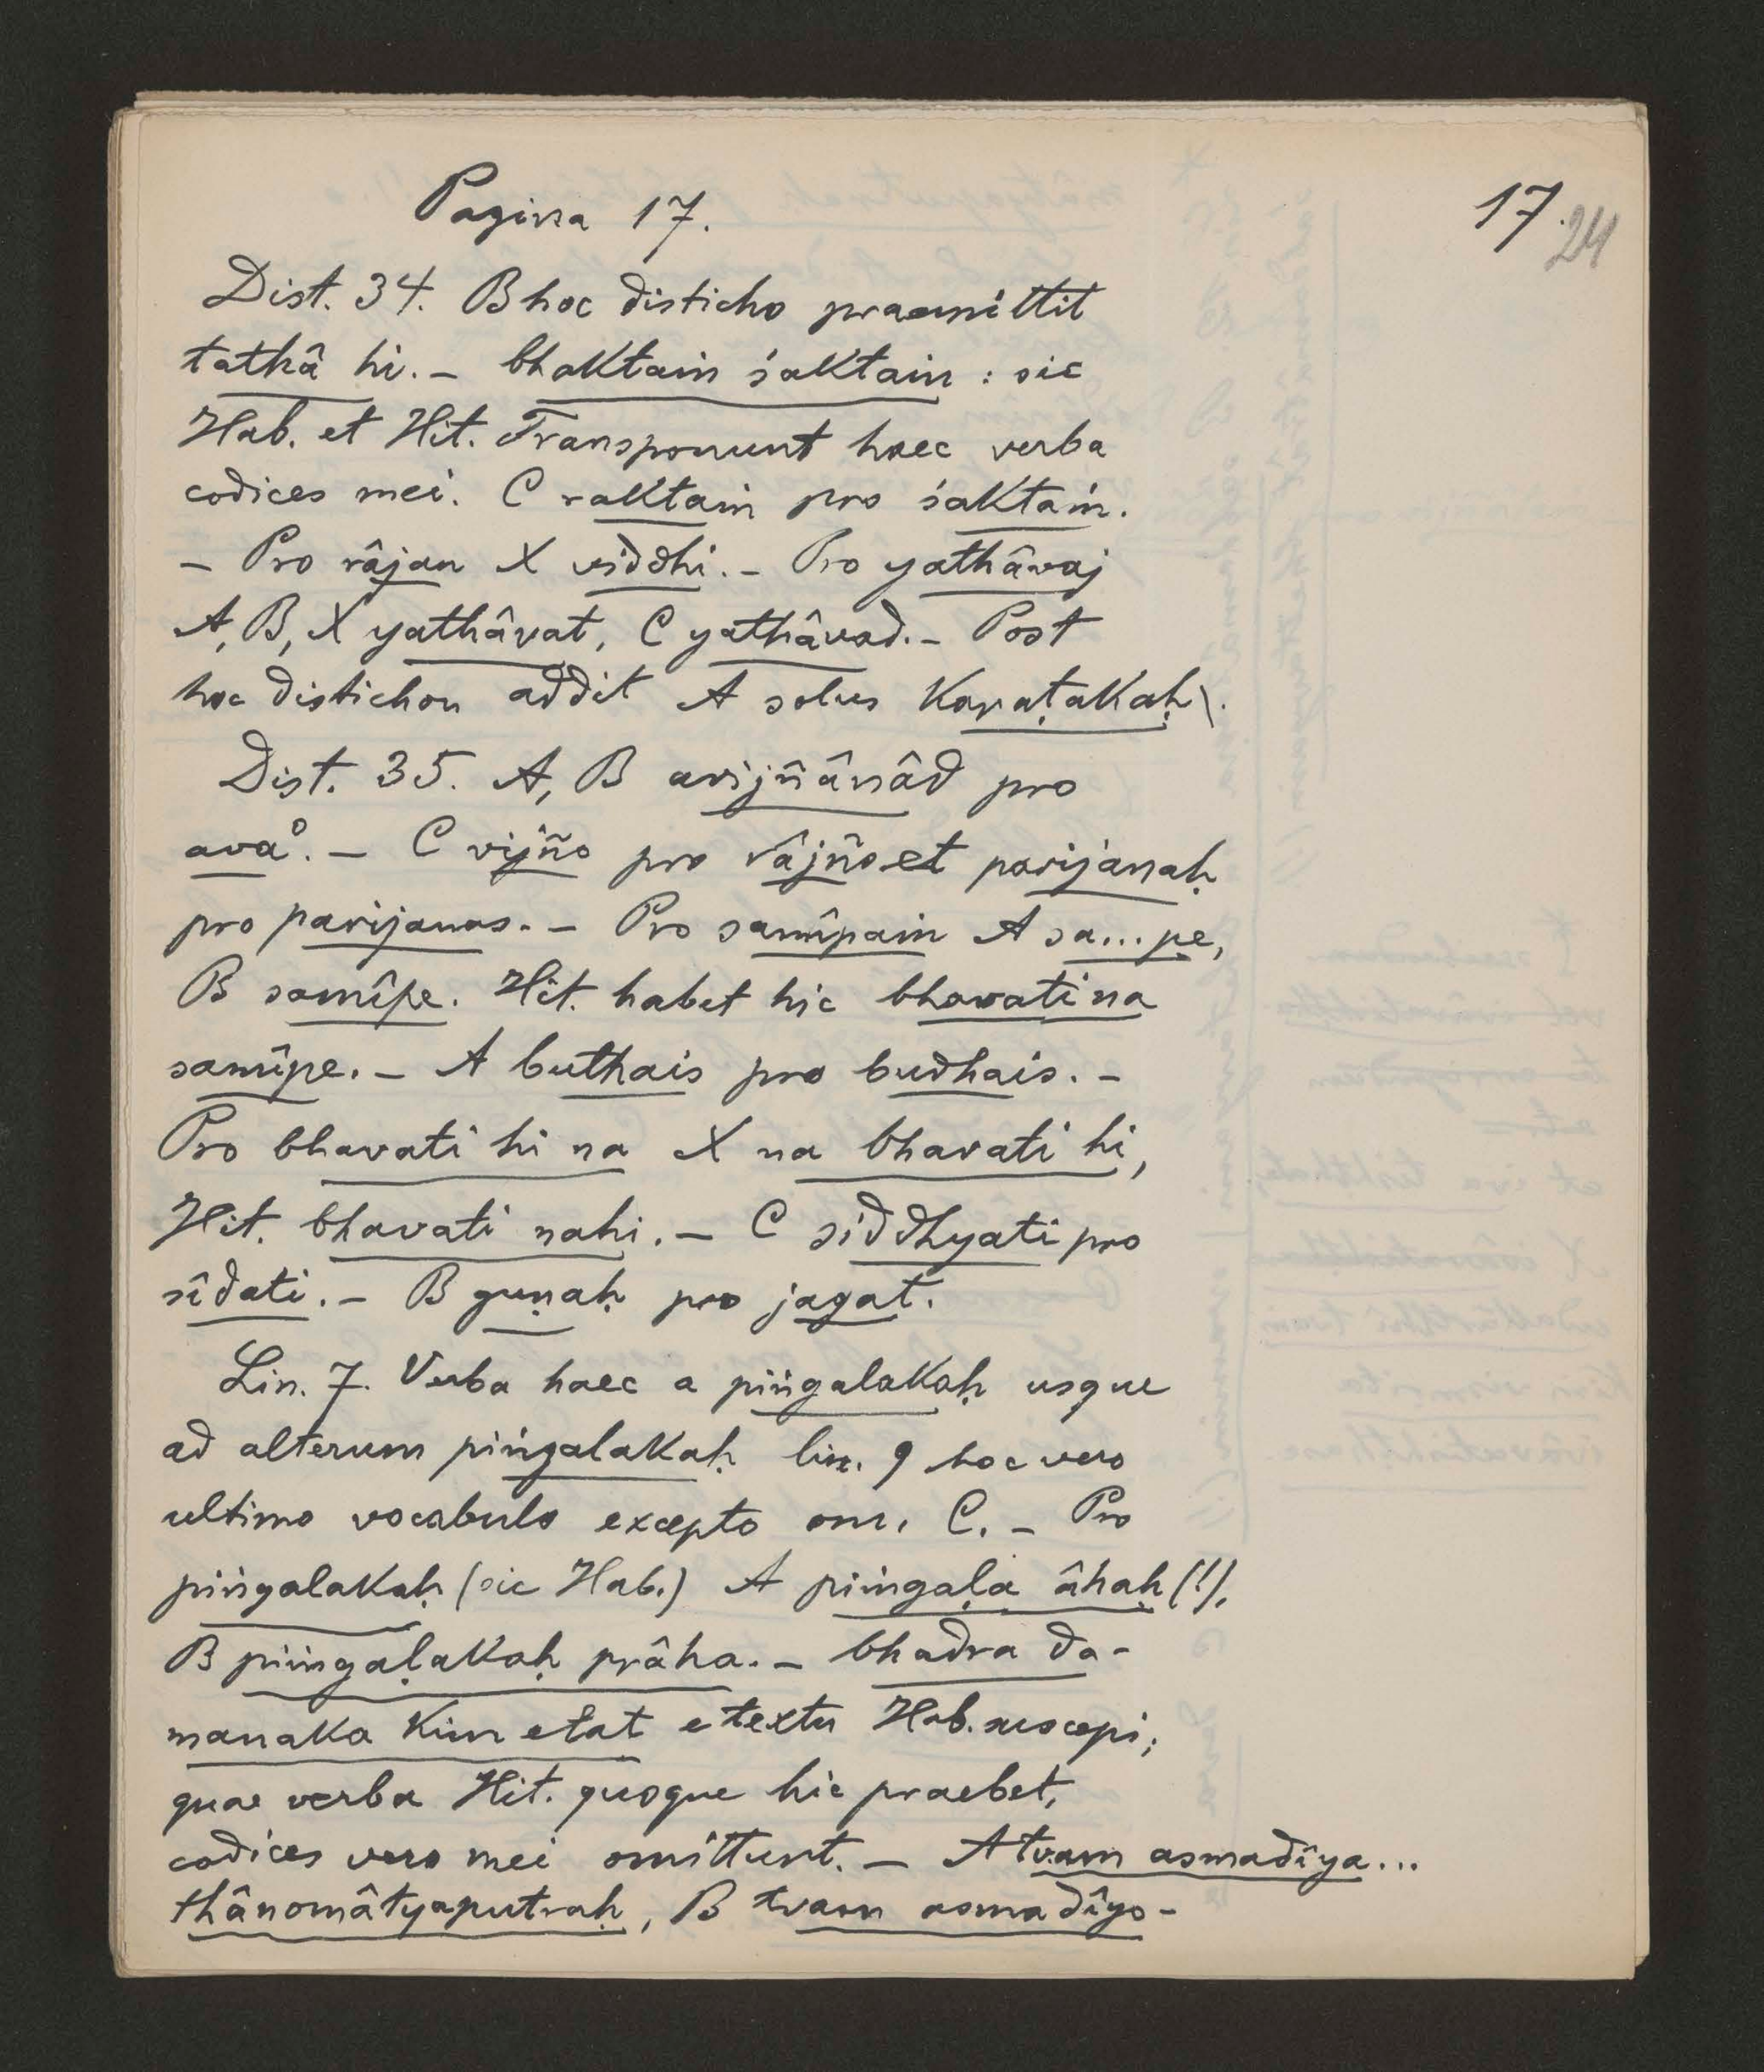 Pagina 17.
17.
24
Dist. 34. B hoc disticho praemittit
tathâ hi. – bhaktaṁ śaktaṁ : sic
Hab. et Hit. Transponunt haec verba
codices mei. C raktaṁ pro śaktaṁ.
– Pro râjan X viddhi. – Pro yathâvaj
A, B, X yathâvat, C yathâvad. – Post
hoc distichon addit A solus Karaṭakaḥ\.
Dist. 35. A, B avijñânâd pro
ava°. – C vijño pro râjño et parijanaḥ
pro parijanas. – Pro samîpaṁ A sa...pe,
B samîpe. Hit. habet hic bhavati na
samîpe. – A buthais pro budhais. –
Pro bhavati hi na X na bhavati hi,
Hit. bhavati nahi. – C siddhyati pro
sîdati. – B guṇaḥ pro jagat.
Lin. 7. Verba haec a piṅgalakaḥ usque
ad alterum piṅgalakaḥ lin. 9 hoc vero
ultimo vocabulo excepto om. C. – Pro
piṅgalakaḥ (sic Hab.) A piṁgaḷa âhaḥ (!),
B piṁgaḷakaḥ prâha. – bhadra da-
manaka kim etat e textu Hab. suscepi;
quae verba Hit. quoque hic praebet,
codices vero mei omittunt. – A tvam asmadîya...
thânomâtyaputraḥ, B tvam asmadîyo-